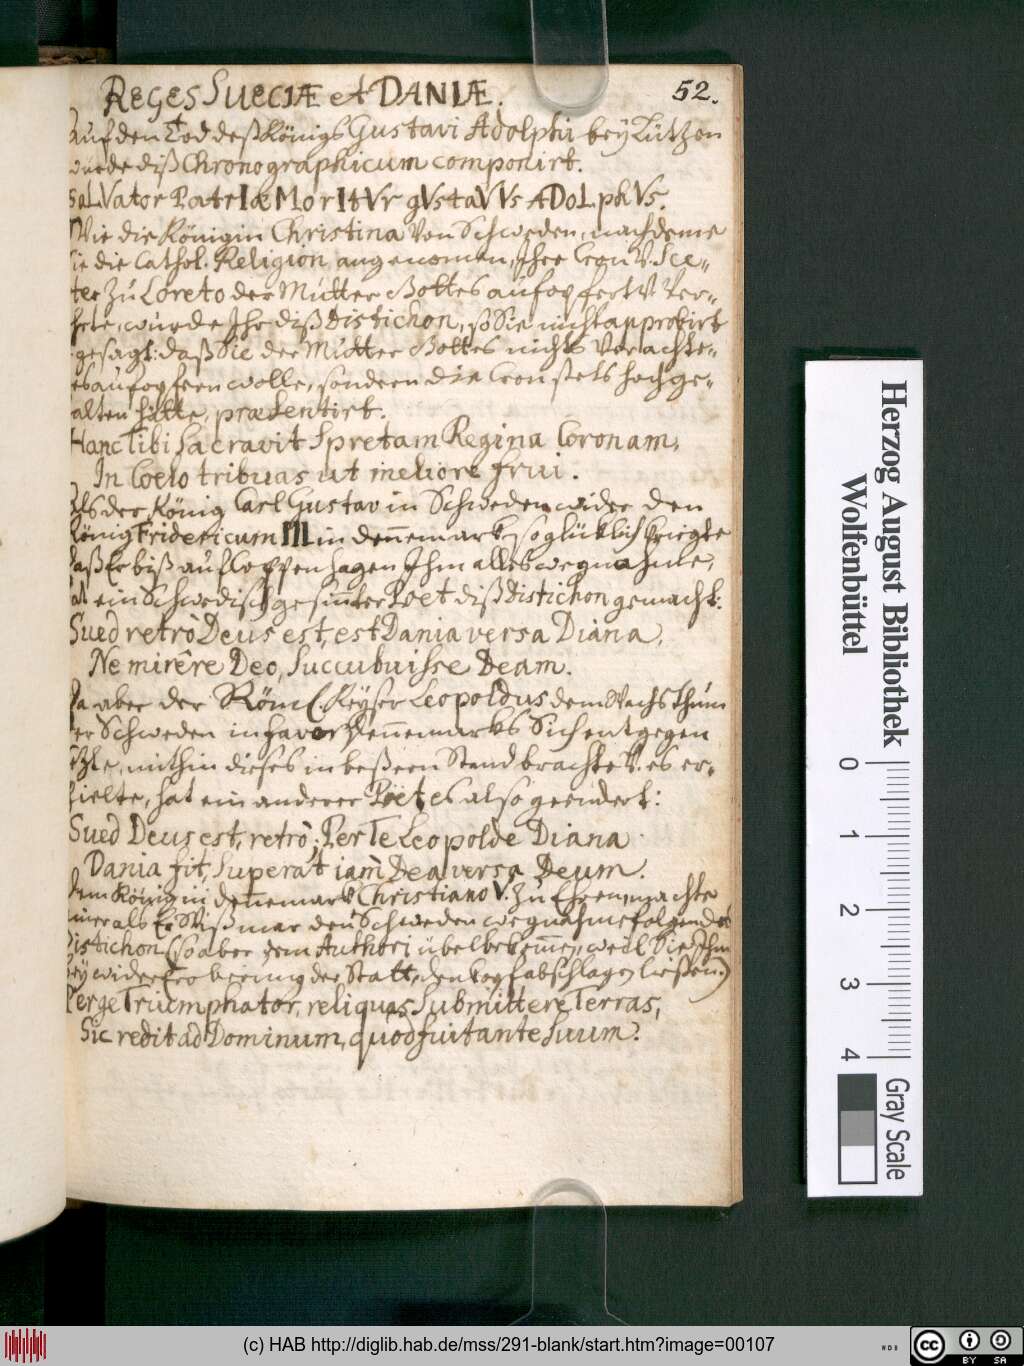 REGES SUECIÆ et DANIÆ. 52.
Auf den Tod deß Königs Gustavi Adolphi bey Lützen
wurde diß Chronographicum componirt.
saLVator PatrIæ MorItVr gVstaVVs ADoLphVs.
Wie die Königin Christina von Schweden, nachdeme
Sie die Cathol. Religion angenomen, Ihre Cron V. Sce„
ter zu Loreto der Mutter Gottes aufopfert V. ver„
ehrte, wurde Ihr diß Distichon, so Sie nicht approbirt
gesagt: daß Sie der Mutter Gottes nichts Verachte„
tes aufopfern wolle, sondern die Cron stets hochge„
halten hätte, præsentirt.
Hanc Tibi Sacravit Spretam Regina Coronam,
In Coelo tribuas ut meliore frui.
Als der König Carl Gustav in Schweden wider den
König Fridericum III in dennemark so glücklich kriegte
daß Er biß auf Coppenhagen Ihm alles wegnahme,
hat ein Schwedisch gesinnter Poet diß Distichon gemacht:
Sued retrò Deus est, est Dania versa Diana,
Ne mirêre Deo, Succubuisse Deam.
Da aber der Röm. Keyser Leopoldus dem Wachsthum
der Schweden in favor Dennemarks Sich entgegen
setzte, mithin dieses in beßern Stand brachte V. es er„
hielte, hat ein anderer Poët es also geendert:
Sued Deus est, retrò; Per Te Leopolde Diana
Dania fit, Superat iam Dea versa Deum.
dem König in dennemark Christiano V. zu Ehren, machte
einer als Er Wißmar den Schweden wegnahme folgendes
Distichon (so aber dem Authori übel bekomen, weil Sie Ihm
bey wider Eroberung der Statt, den kopf abschlagen ließen.)
Perge Triumphator, reliquas Submittere Terras,
Sic redit ad Dominum, quod fuit ante Suum.
Herzog August Bibliothek
Wolfenbüttel
0 1 2 3 4
Gray Scale
(c) HAB http://diglib.hab.de/mss/291-blank/start.htm?image=00107
WDB
cc BY SA